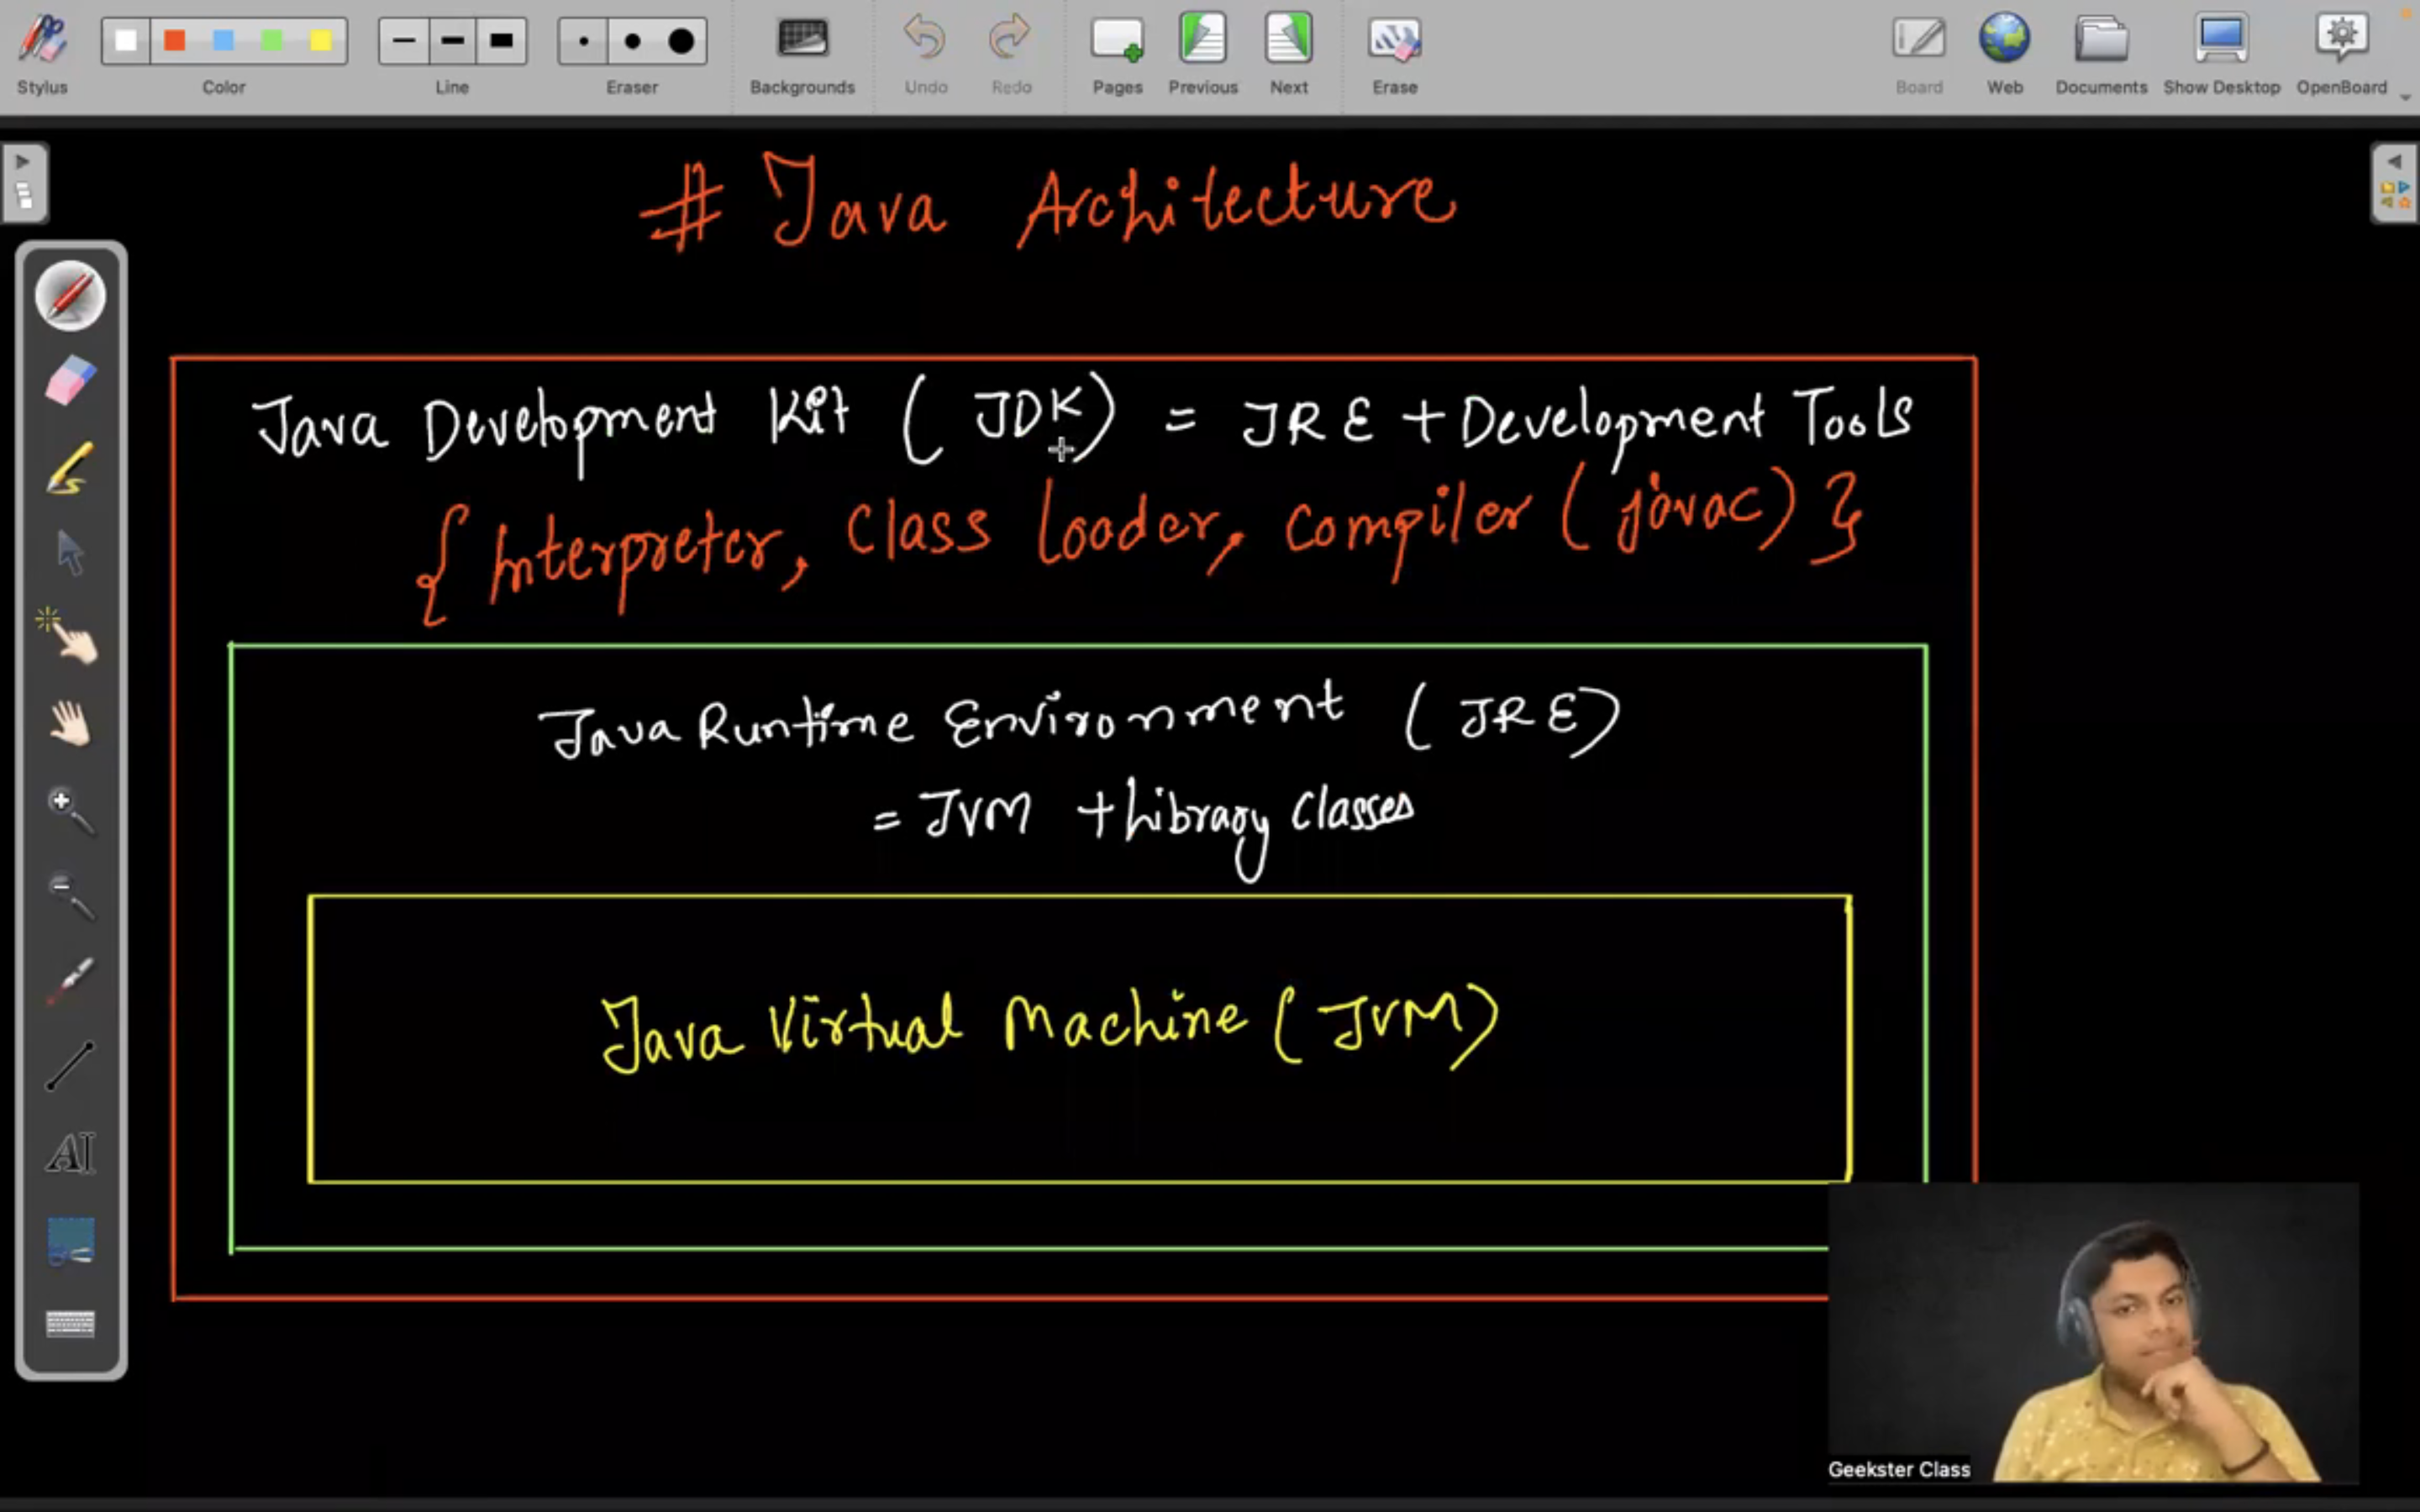 Stylus Color Line Eraser Backgrounds Undo Redo Pages Previous Next Erase Board Web Documents Show Desktop OpenBoard
# Java Architecture
Java Development Kit ( JDK ) = JRE + Development Tools
{ Interpreter, Class Loader, Compiler ( javac ) }
Java Runtime Environment ( JRE )
= JVM + Library Classes
Java Virtual Machine ( JVM )
AI
Geekster Class